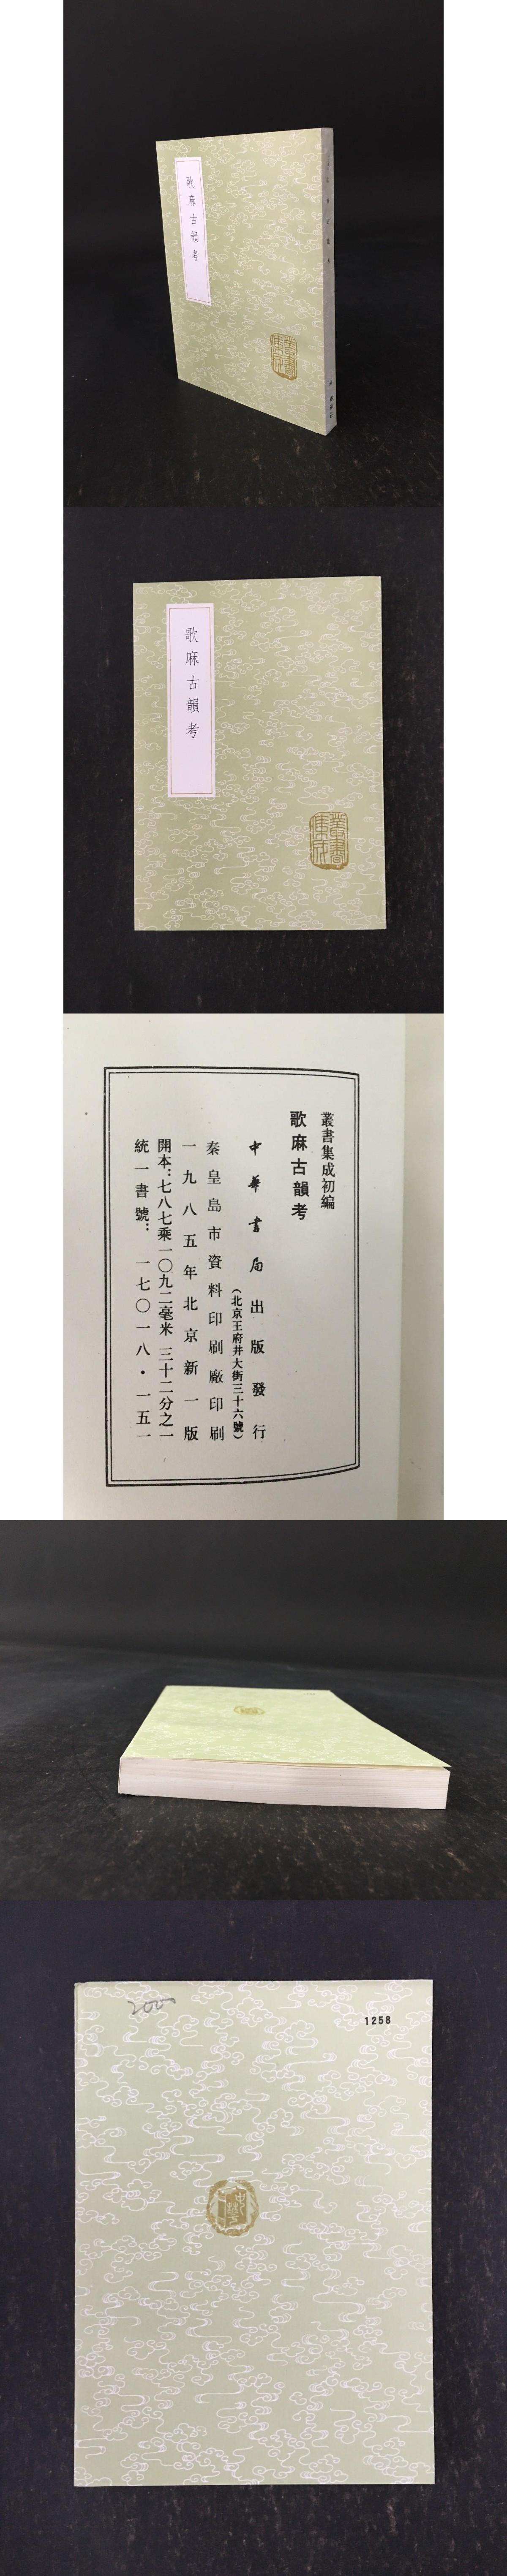 歌麻古韻考
叢書
集成
歌麻古韻考
叢書
集成
叢書集成初編
歌麻古韻考
中華書局出版發行
(北京王府井大街三十六號)
秦皇島市資料印刷廠印刷
一九八五年北京新一版
開本：七八七乘一〇九二毫米 三十二分之一
統一書號：一七〇一八·一五一
2000
1258